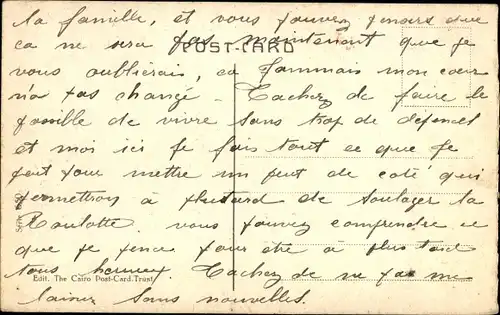 la famille, et vous pouvez pensers que
ca ne sera pas maintenant que je
POST-CARD
vous oublierais, ca Jammais mon cœur
n'a pas changé - Tachez de faire le
possible de vivre sans trop de dépences
et moi ici je fais tout ce que je
peut pour mettre un peut de coté qui
permettrons à plustard de soulager la
Roulotte. vous pouvez comprendre ce
que je pence pour etre à plus tard
tous heureux. Tachez de ne pas me
Edit. The Cairo Post-Card-Trust
laisser sans nouvelles.